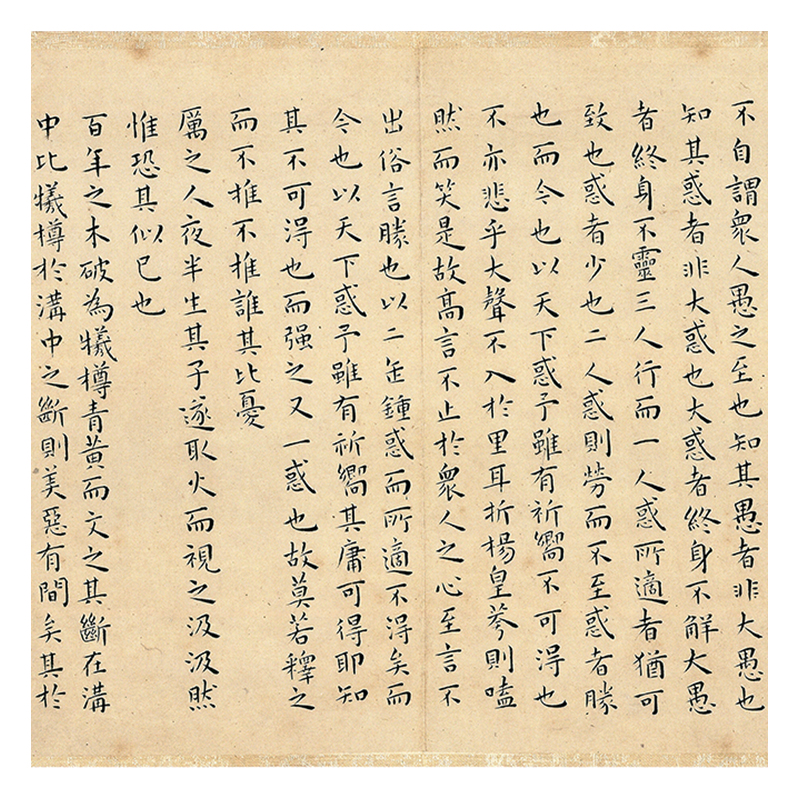 不自謂衆人愚之至也知其愚者非大愚也
知其惑者非大惑也大惑者終身不解大愚
者終身不靈三人行而一人惑所適者猶可
致也惑者少也二人惑則勞而不至惑者勝
也而今也以天下惑予雖有祈嚮不可得也
不亦悲乎大聲不入於里耳折楊皇荂則嗑
然而笑是故高言不止於衆人之心至言不
出俗言勝也以二缶鍾惑而所適不得矣而
今也以天下惑予雖有祈嚮其庸可得耶知
其不可得也而强之又一惑也故莫若釋之
而不推不推誰其比憂
厲之人夜半生其子遂取火而視之汲汲然
惟恐其似已也
百年之木破為犧樽青黃而文之其斷在溝
中比犧樽於溝中之斷則美惡有間矣其於